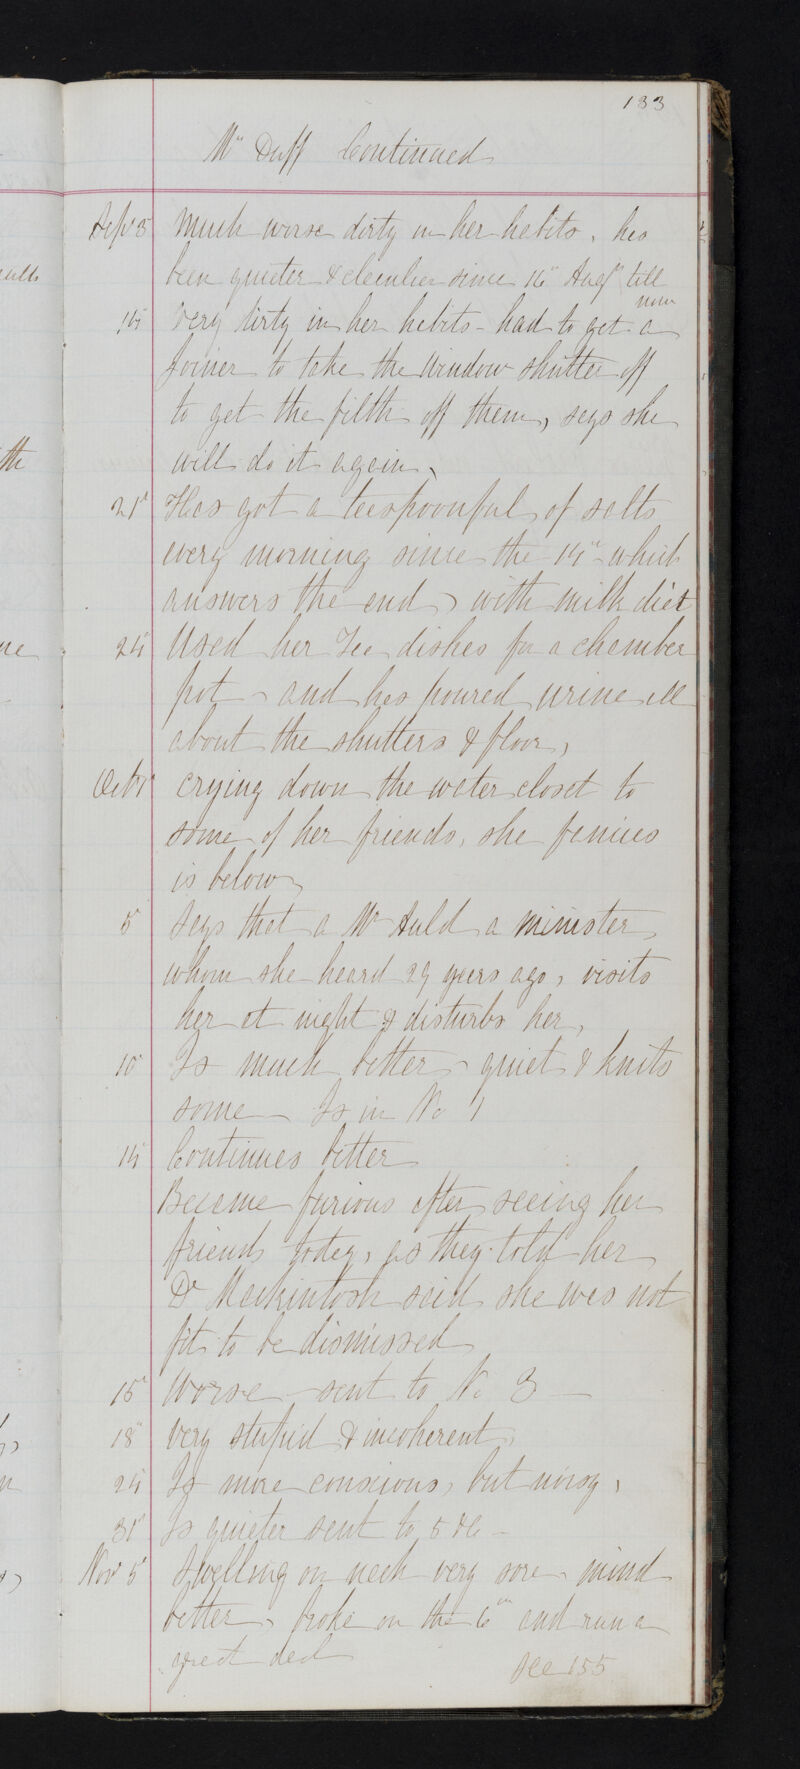 133
Mrs Duff Continued
Sepr 5 Much worse dirty in her habits, has
been quieter & cleanlier since 16th Augt till
now
14 Very dirty in her habits - had to get a
Joiner to take the Window Shutter off
to get the filth off them, says she
will do it again,
21st Has got a teaspoonful of salts
every morning since the 14th which
answers the end, with milk diet
24 Used her Tea dishes for a chamber
pot - and has poured urine all
about the shutters & floor,
Octr 1st Crying down the water closet to
some of her friends, she fancies
is below,
5 Says that a Mr Auld a minister,
whom she heard 29 years ago, visits
her at night & disturbs her,
10 Is much better - quiet & knits
some - Is in No 1
14 Continues better
Became furious after seeing her
friends today, as they told her
Dr Mackintosh said she was not
fit to be dismissed
15 Worse - sent to No 3 -
18 Very stupid & incoherent,
24 Is more conscious, but noisy,
31st Is quieter sent to 5
Novr 5 Swelling on neck very sore - mind
better, broke on the 6th and run a
great deal
See 155